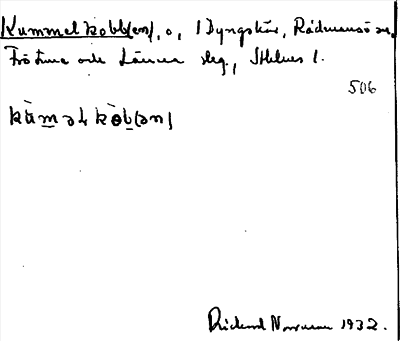 Kummelkobb(en), ö, i Dyngskär, Rådmansö sn,
Frötuna och Länna slg., Sthlms l.
506
kùməlkòb(ən)
Rickard Norrman 1932.